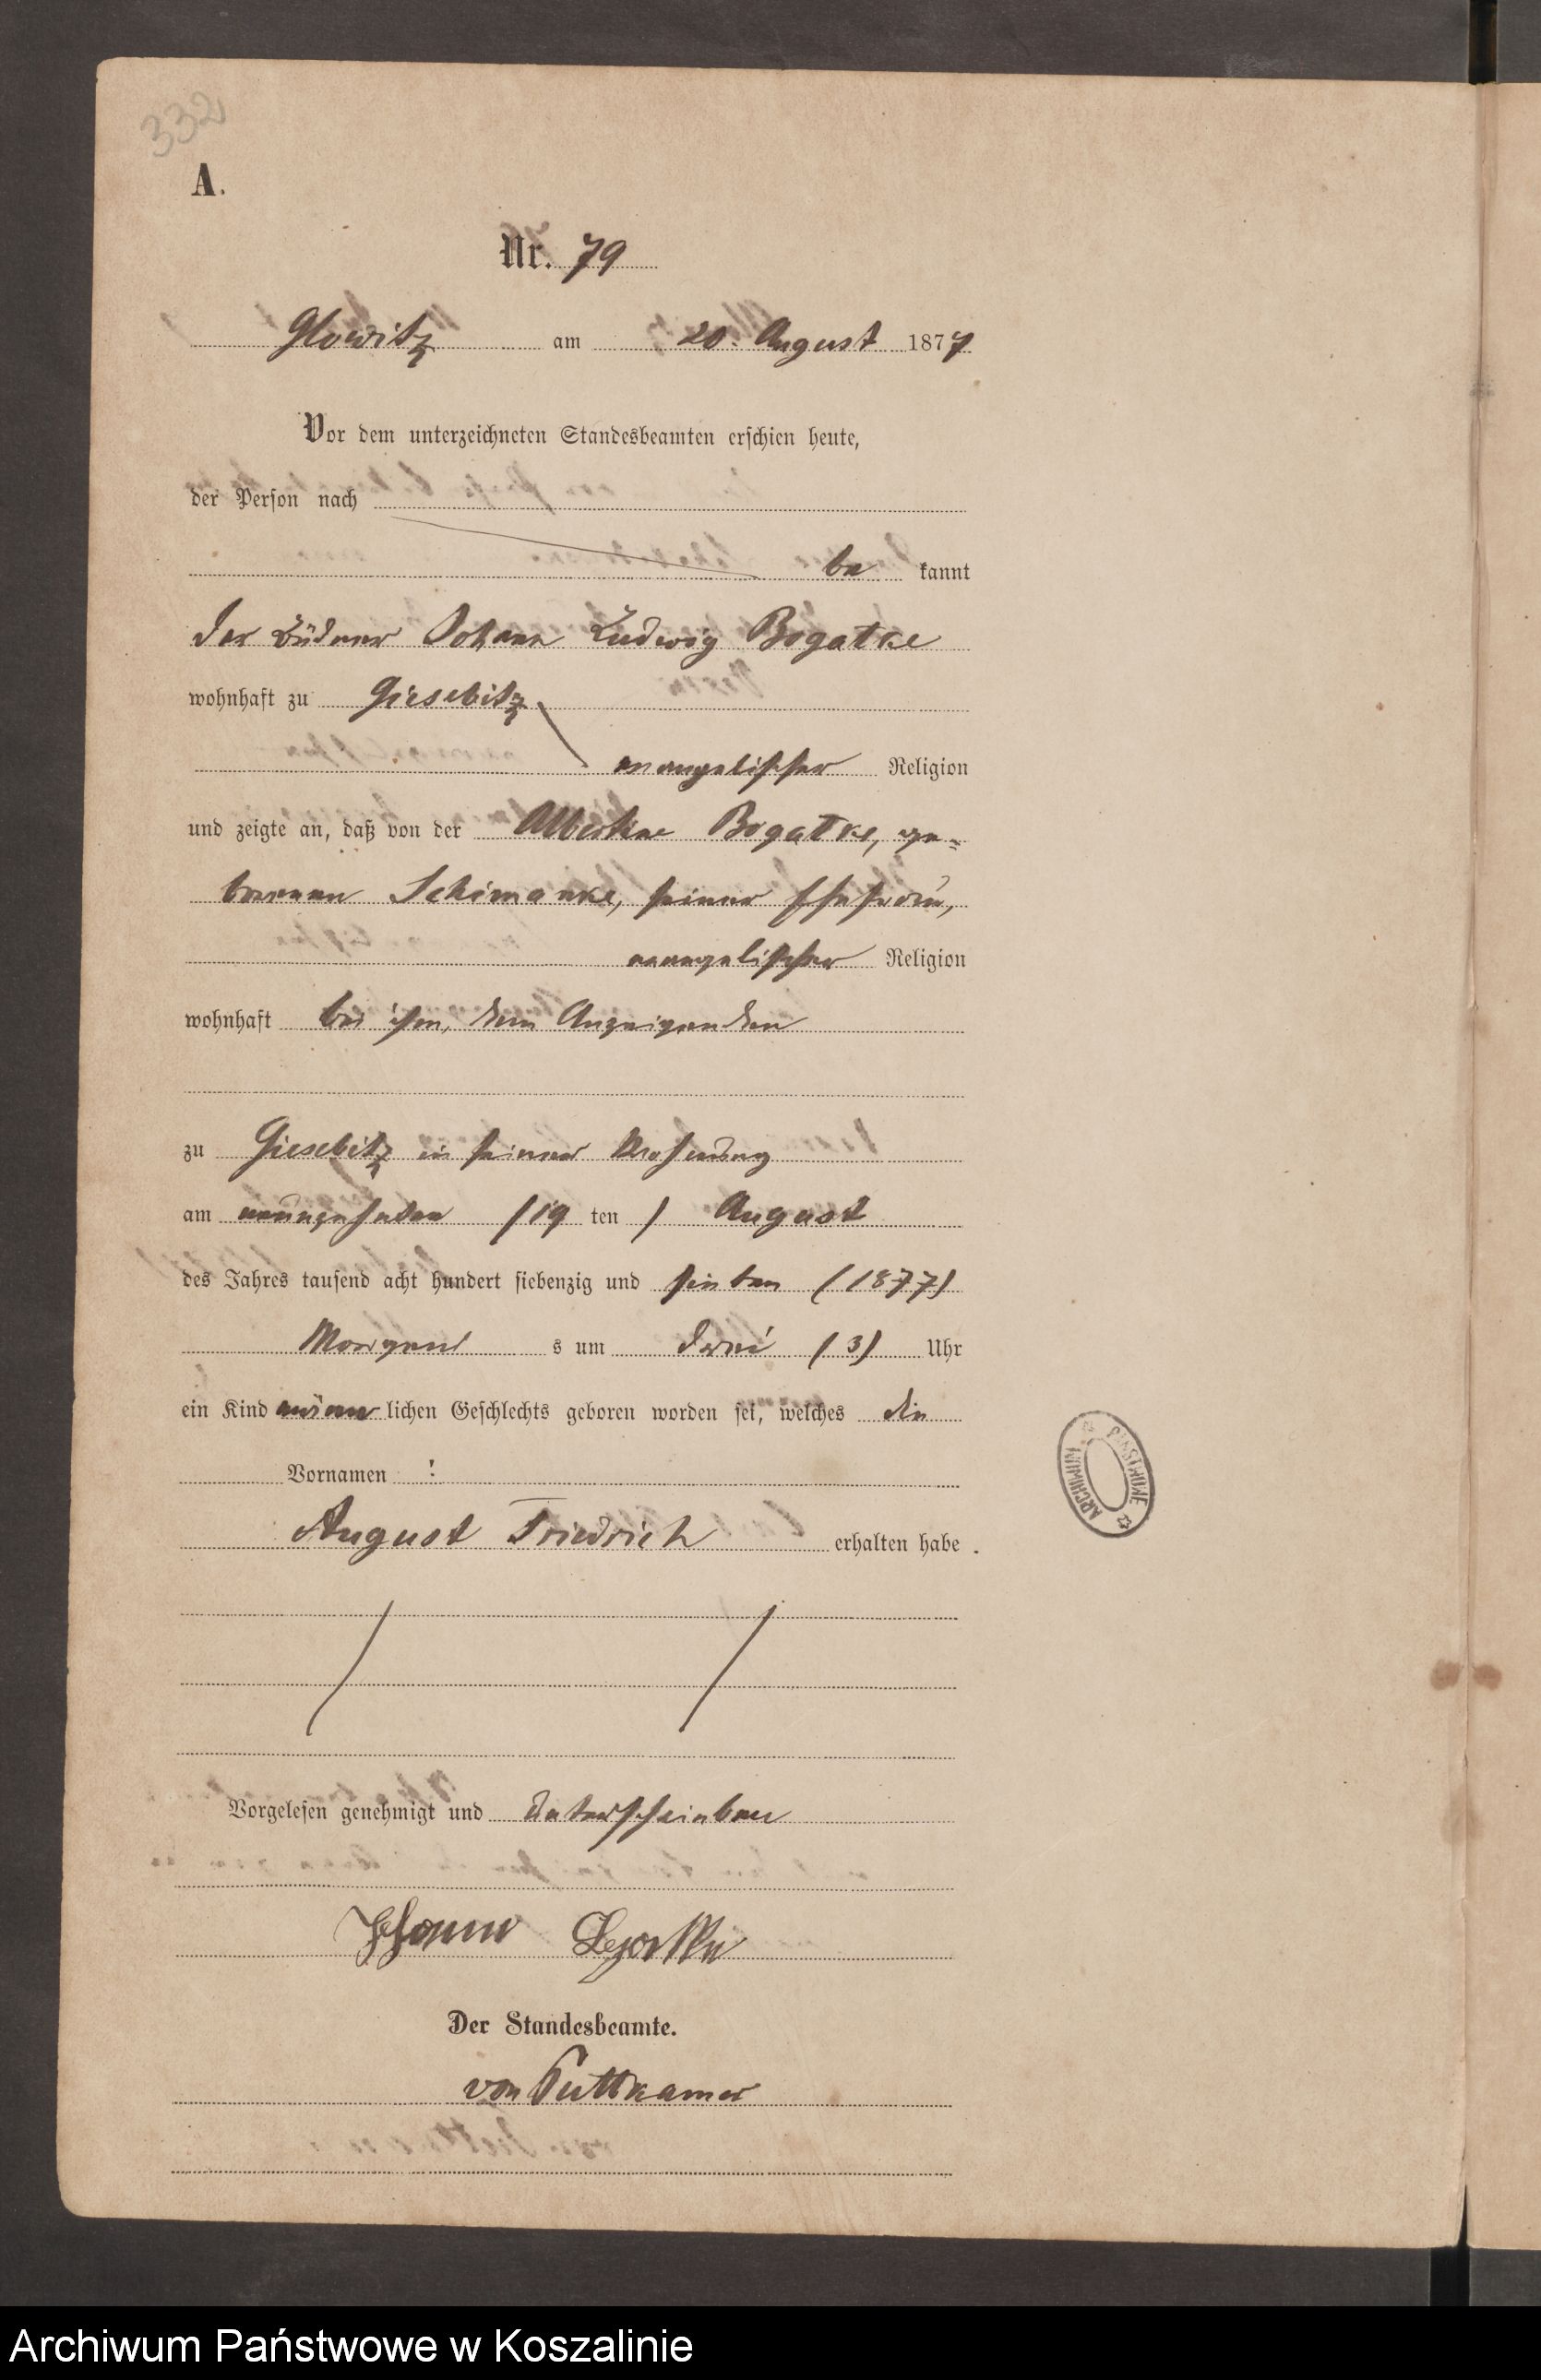 332
A.
Nr. 79
Glowitz am 20. August 1877
Vor dem unterzeichneten Standesbeamten erschien heute,
der Person nach
be kannt
der Büdner Johann Ludwig Bogatke
wohnhaft zu Giesebitz
evangelischer Religion
und zeigte an, daß von der Albertine Bogatke, ge-
borenen Schimanke, seiner Ehefrau,
evangelischer Religion
wohnhaft bei ihm, dem Anzeigenden
zu Giesebitz in seiner Wohnung
am neunzehnten (19 ten ) August
des Jahres tausend acht hundert siebenzig und sieben (1877)
Morgens s um drei (3) Uhr
ein Kind männ lichen Geschlechts geboren worden sei, welches die
Vornamen :
August Friedrich erhalten habe .
Vorgelesen genehmigt und unterschrieben
Johann
Der Standesbeamte.
von Puttkamer
ARCHIWUM PAŃSTWOWE
Archiwum Państwowe w Koszalinie